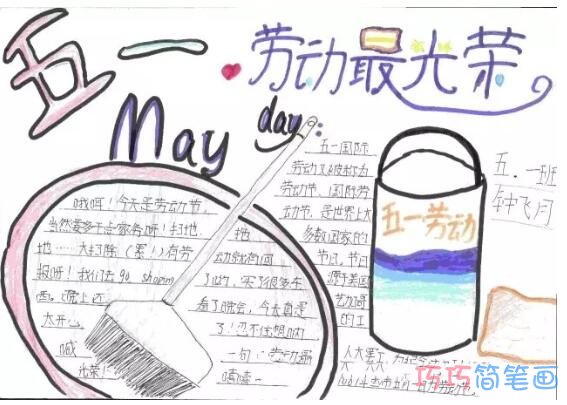 五一
劳动最光荣
May day:
五.一班
钟飞闫
哦呀！今天是劳动节，
当然要多干家务呀！扫地
地……大扫除（累！）有劳
动就有回
报呀！我们去go shoping
了的，买了很多东
西。晚上还
看了晚会，今天真是
太开心
了！忍不住想呐
喊
一句：劳动最
光荣！
嘻嘻~
五一国际
劳动又被称为
劳动节、国际劳
动节，是世界上大
多数国家的
节日。节日
源于美国
芝加哥
的工
人大罢工，为纪念
五一劳动
巧巧简笔画